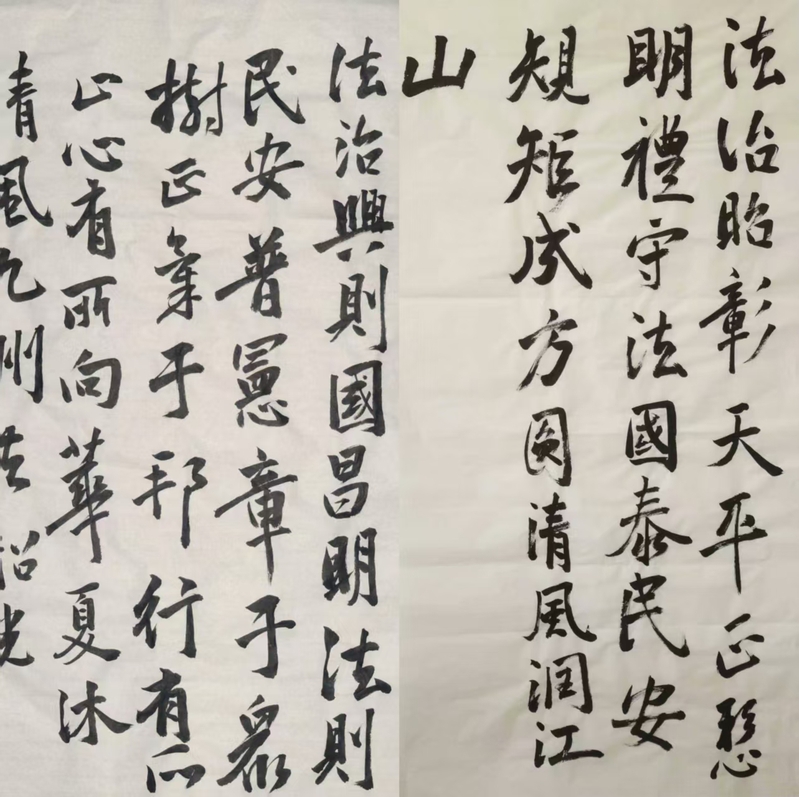 法治昭彰天平正
明禮守法國泰民安
規矩成方圓清風潤江
山
法治興則國昌明法則
民安普憲章于衆
樹正氣于邦行有所
止心有所向華夏沐
清風九州